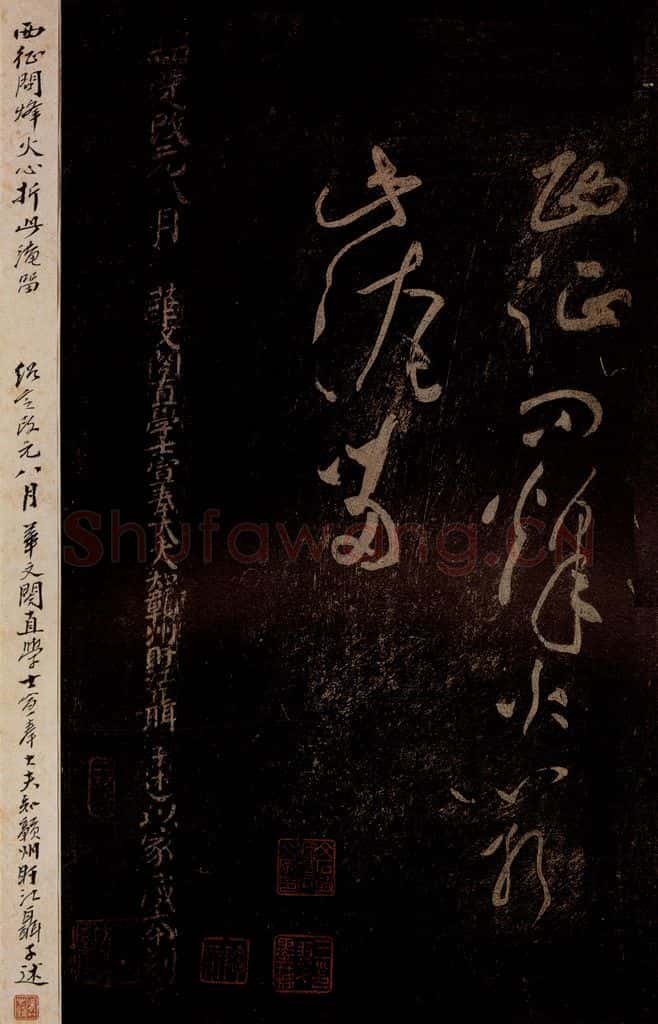 西征問烽火心折
此淹留
紹定改元八月 華文閣直學士宣奉大夫知贛州盱江聶子述以家藏本刻
西征問烽火心折此淹留 紹定改元八月華文閣直學士宣奉大夫知贛州盱江聶子述
Shufawang.CN